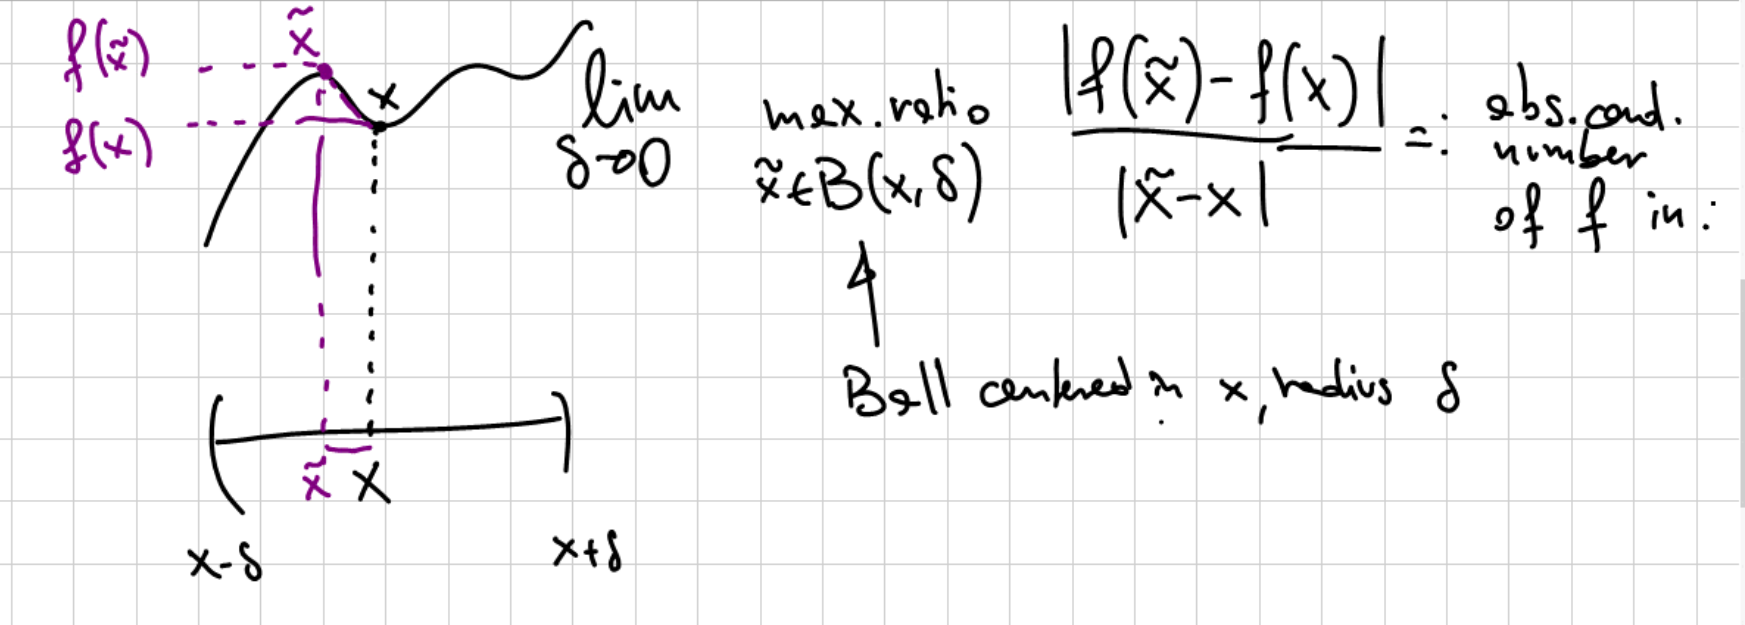 f(x̃)
x̃
f(x)
x
lim
δ→0
max. ratio
x̃∈B(x,δ)
|f(x̃)-f(x)|
|x̃-x|
=:
abs. cond.
number
of f in:
Ball centered in x, radius δ
x̃ x
x-δ
x+δ